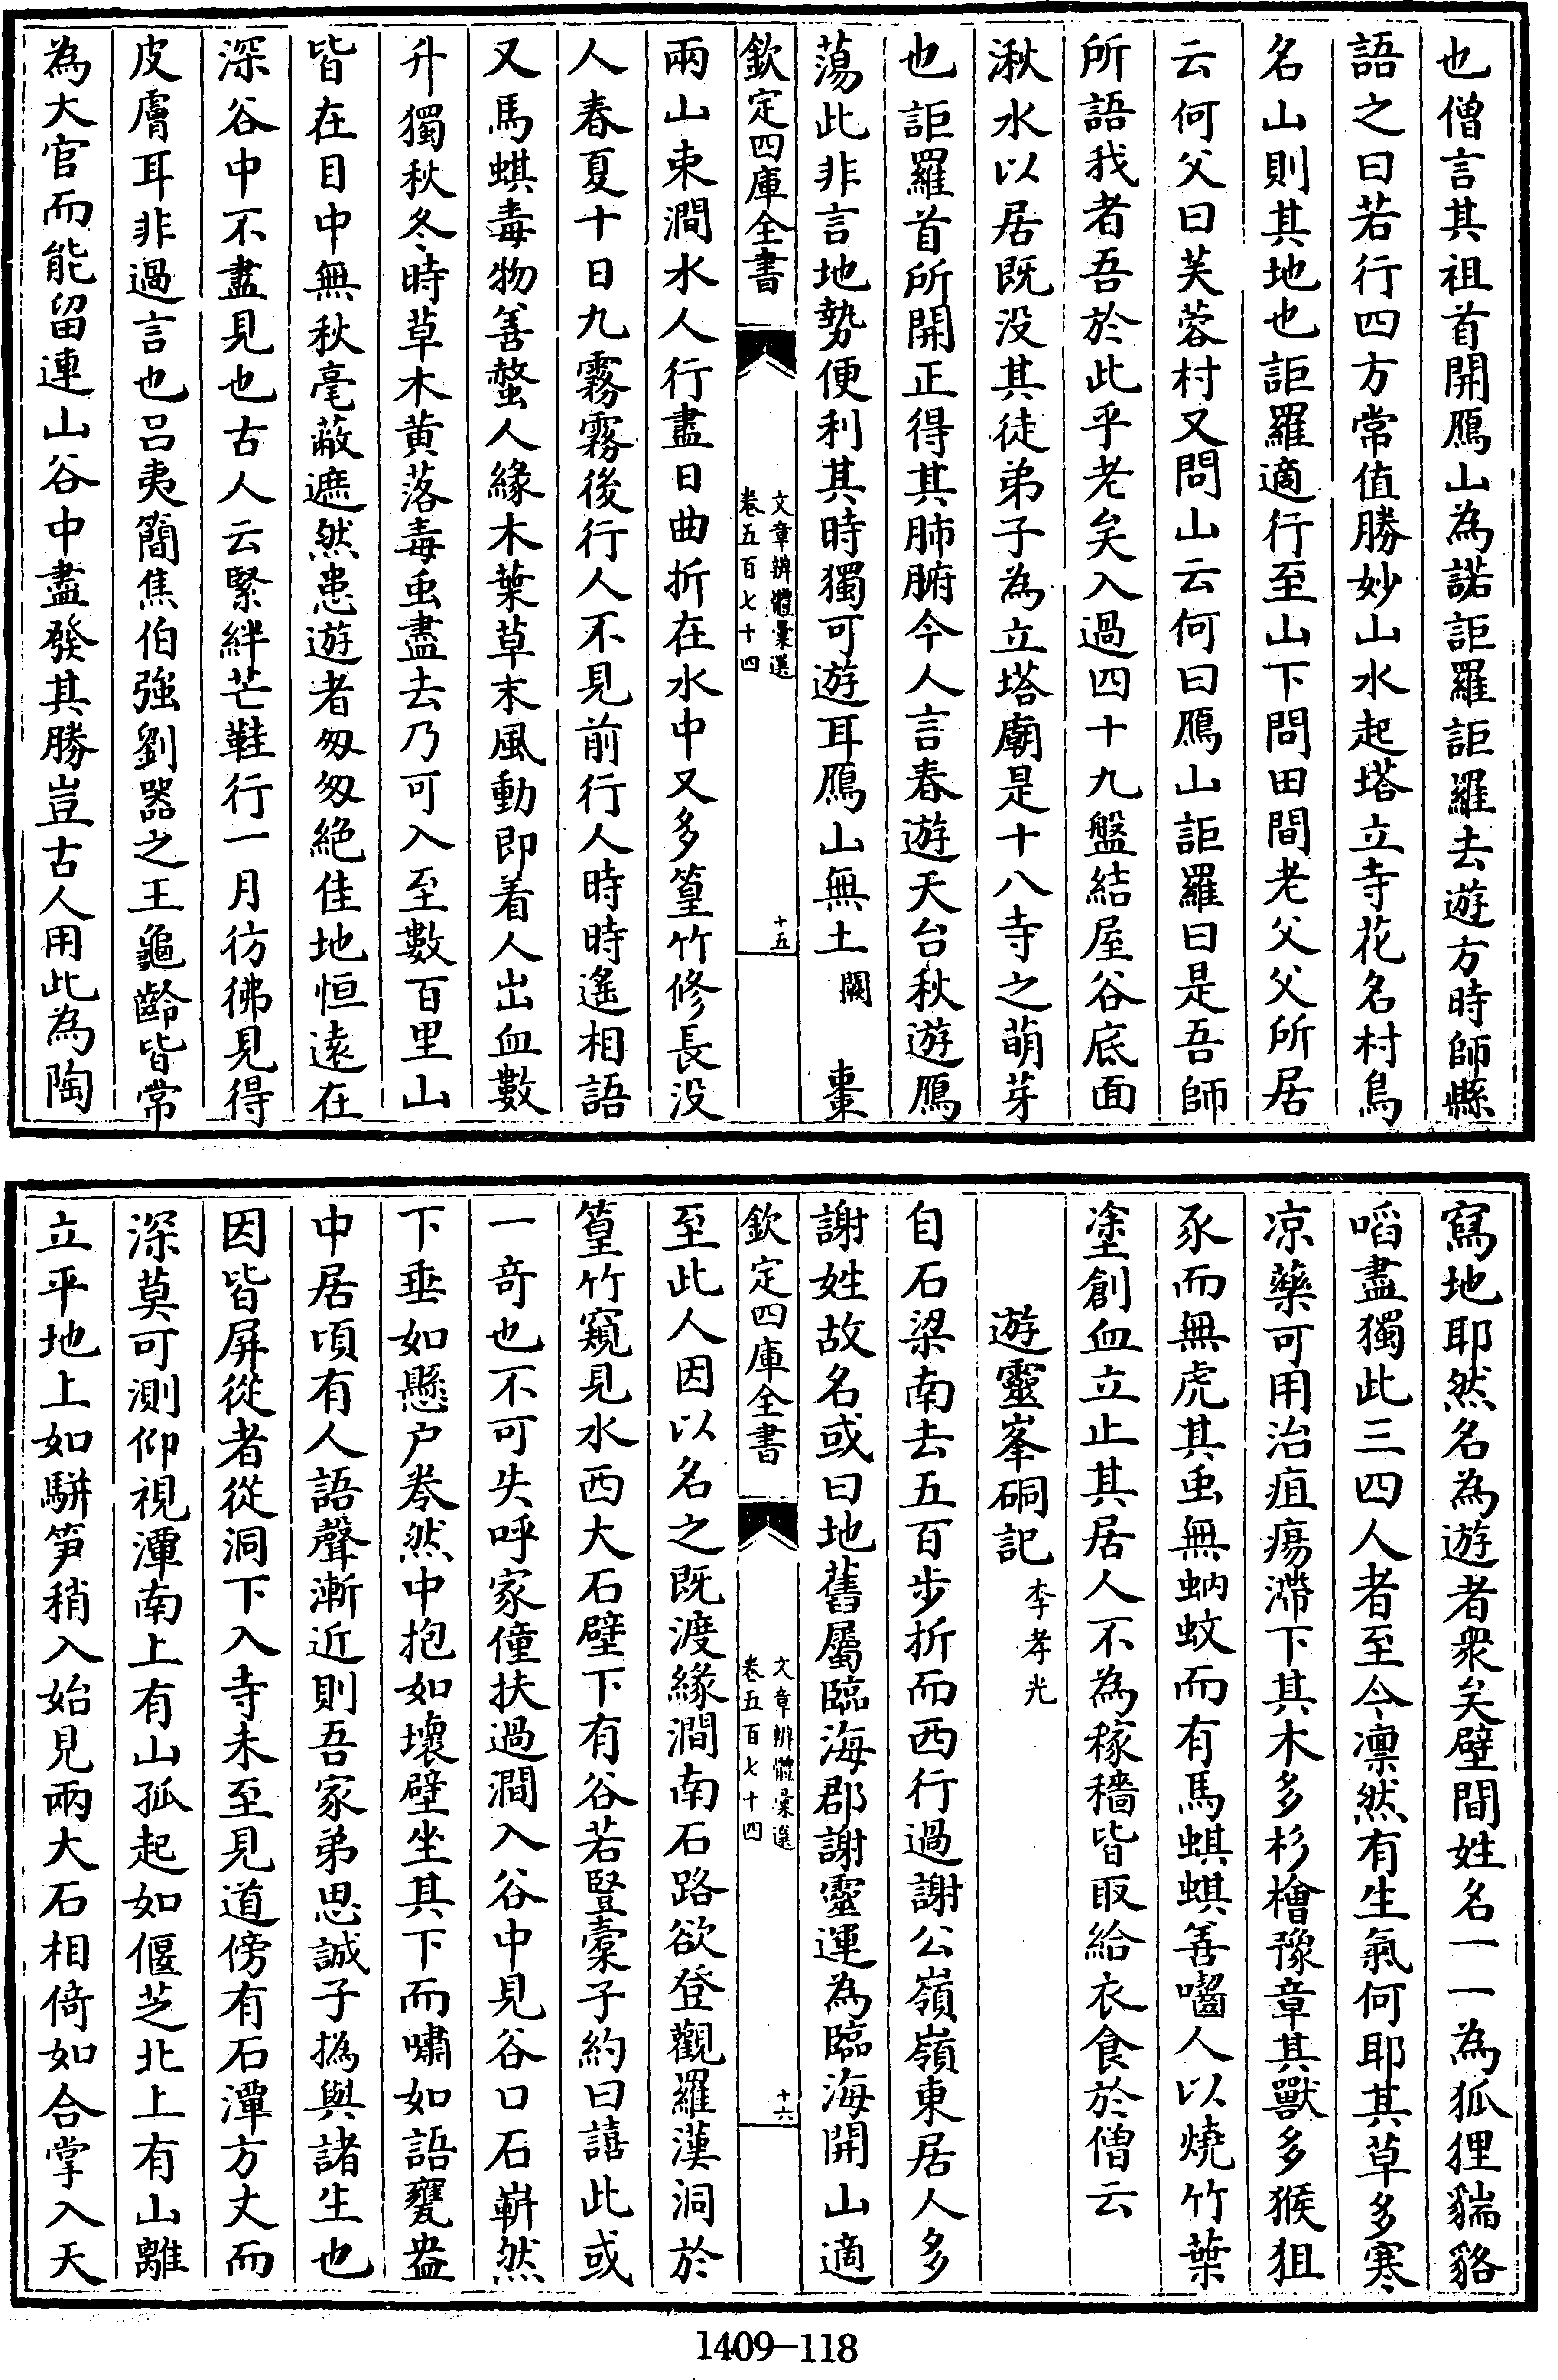 也僧言其祖首開鴈山為諾詎羅詎羅去遊方時師縣
語之曰若行四方常值勝妙山水起塔立寺花名村鳥
名山則其地也詎羅適行至山下問田間老父父所居
云何父曰芙蓉村又問山云何曰鴈山詎羅曰是吾師
所語我者吾於此乎老矣入過四十九盤結屋谷底面
湫水以居既没其徒弟子為立塔廟是十八寺之萌芽
也詎羅首所開正得其肺腑今人言春遊天台秋遊鴈
蕩此非言地勢便利其時獨可遊耳鴈山無土闕 棗
欽定四庫全書
文章辨體彙選
卷五百七十四
十五
兩山束澗水人行盡日曲折在水中又多篁竹修長没
人春夏十日九霧霧後行人不見前行人時時遙相語
又馬蜞毒物善螫人緣木葉草末風動即着人出血數
升獨秋冬時草木黄落毒虫盡去乃可入至數百里山
皆在目中無秋毫蔽遮然患遊者匆匆絶佳地恒遠在
深谷中不盡見也古人云緊絆芒鞋行一月彷彿見得
皮膚耳非過言也吕夷簡焦伯強劉器之王龜齡皆常
為大官而能留連山谷中盡發其勝豈古人用此為陶
寫地耶然名為遊者衆矣壁間姓名一一為狐狸貒貉
㗖盡獨此三四人者至今凛然有生氣何耶其草多寒
凉藥可用治疽瘍滯下其木多杉檜豫章其獸多猴狙
豕而無虎其虫無蚋蚊而有馬蜞蜞善嚙人以燒竹葉
塗創血立止其居人不為稼穡皆取給衣食於僧云
遊靈峯硐記李孝光
自石梁南去五百步折而西行過謝公嶺嶺東居人多
謝姓故名或曰地舊屬臨海郡謝靈運為臨海開山適
欽定四庫全書
文章辨體彙選
卷五百七十四
十六
至此人因以名之既渡緣澗南石路欲登觀羅漢洞於
篁竹窺見水西大石壁下有谷若豎橐子約曰譆此或
一奇也不可失呼家僮扶過澗入谷中見谷口石嶄然
下垂如懸户豢然中抱如壞壁坐其下而嘯如語甕盎
中居頃有人語聲漸近則吾家弟思誠子撝與諸生也
因皆屏從者從洞下入寺未至見道傍有石潭方丈而
深莫可測仰視潭南上有山孤起如偃芝北上有山離
立平地上如駢笋稍入始見兩大石相倚如合掌入天
1409-118